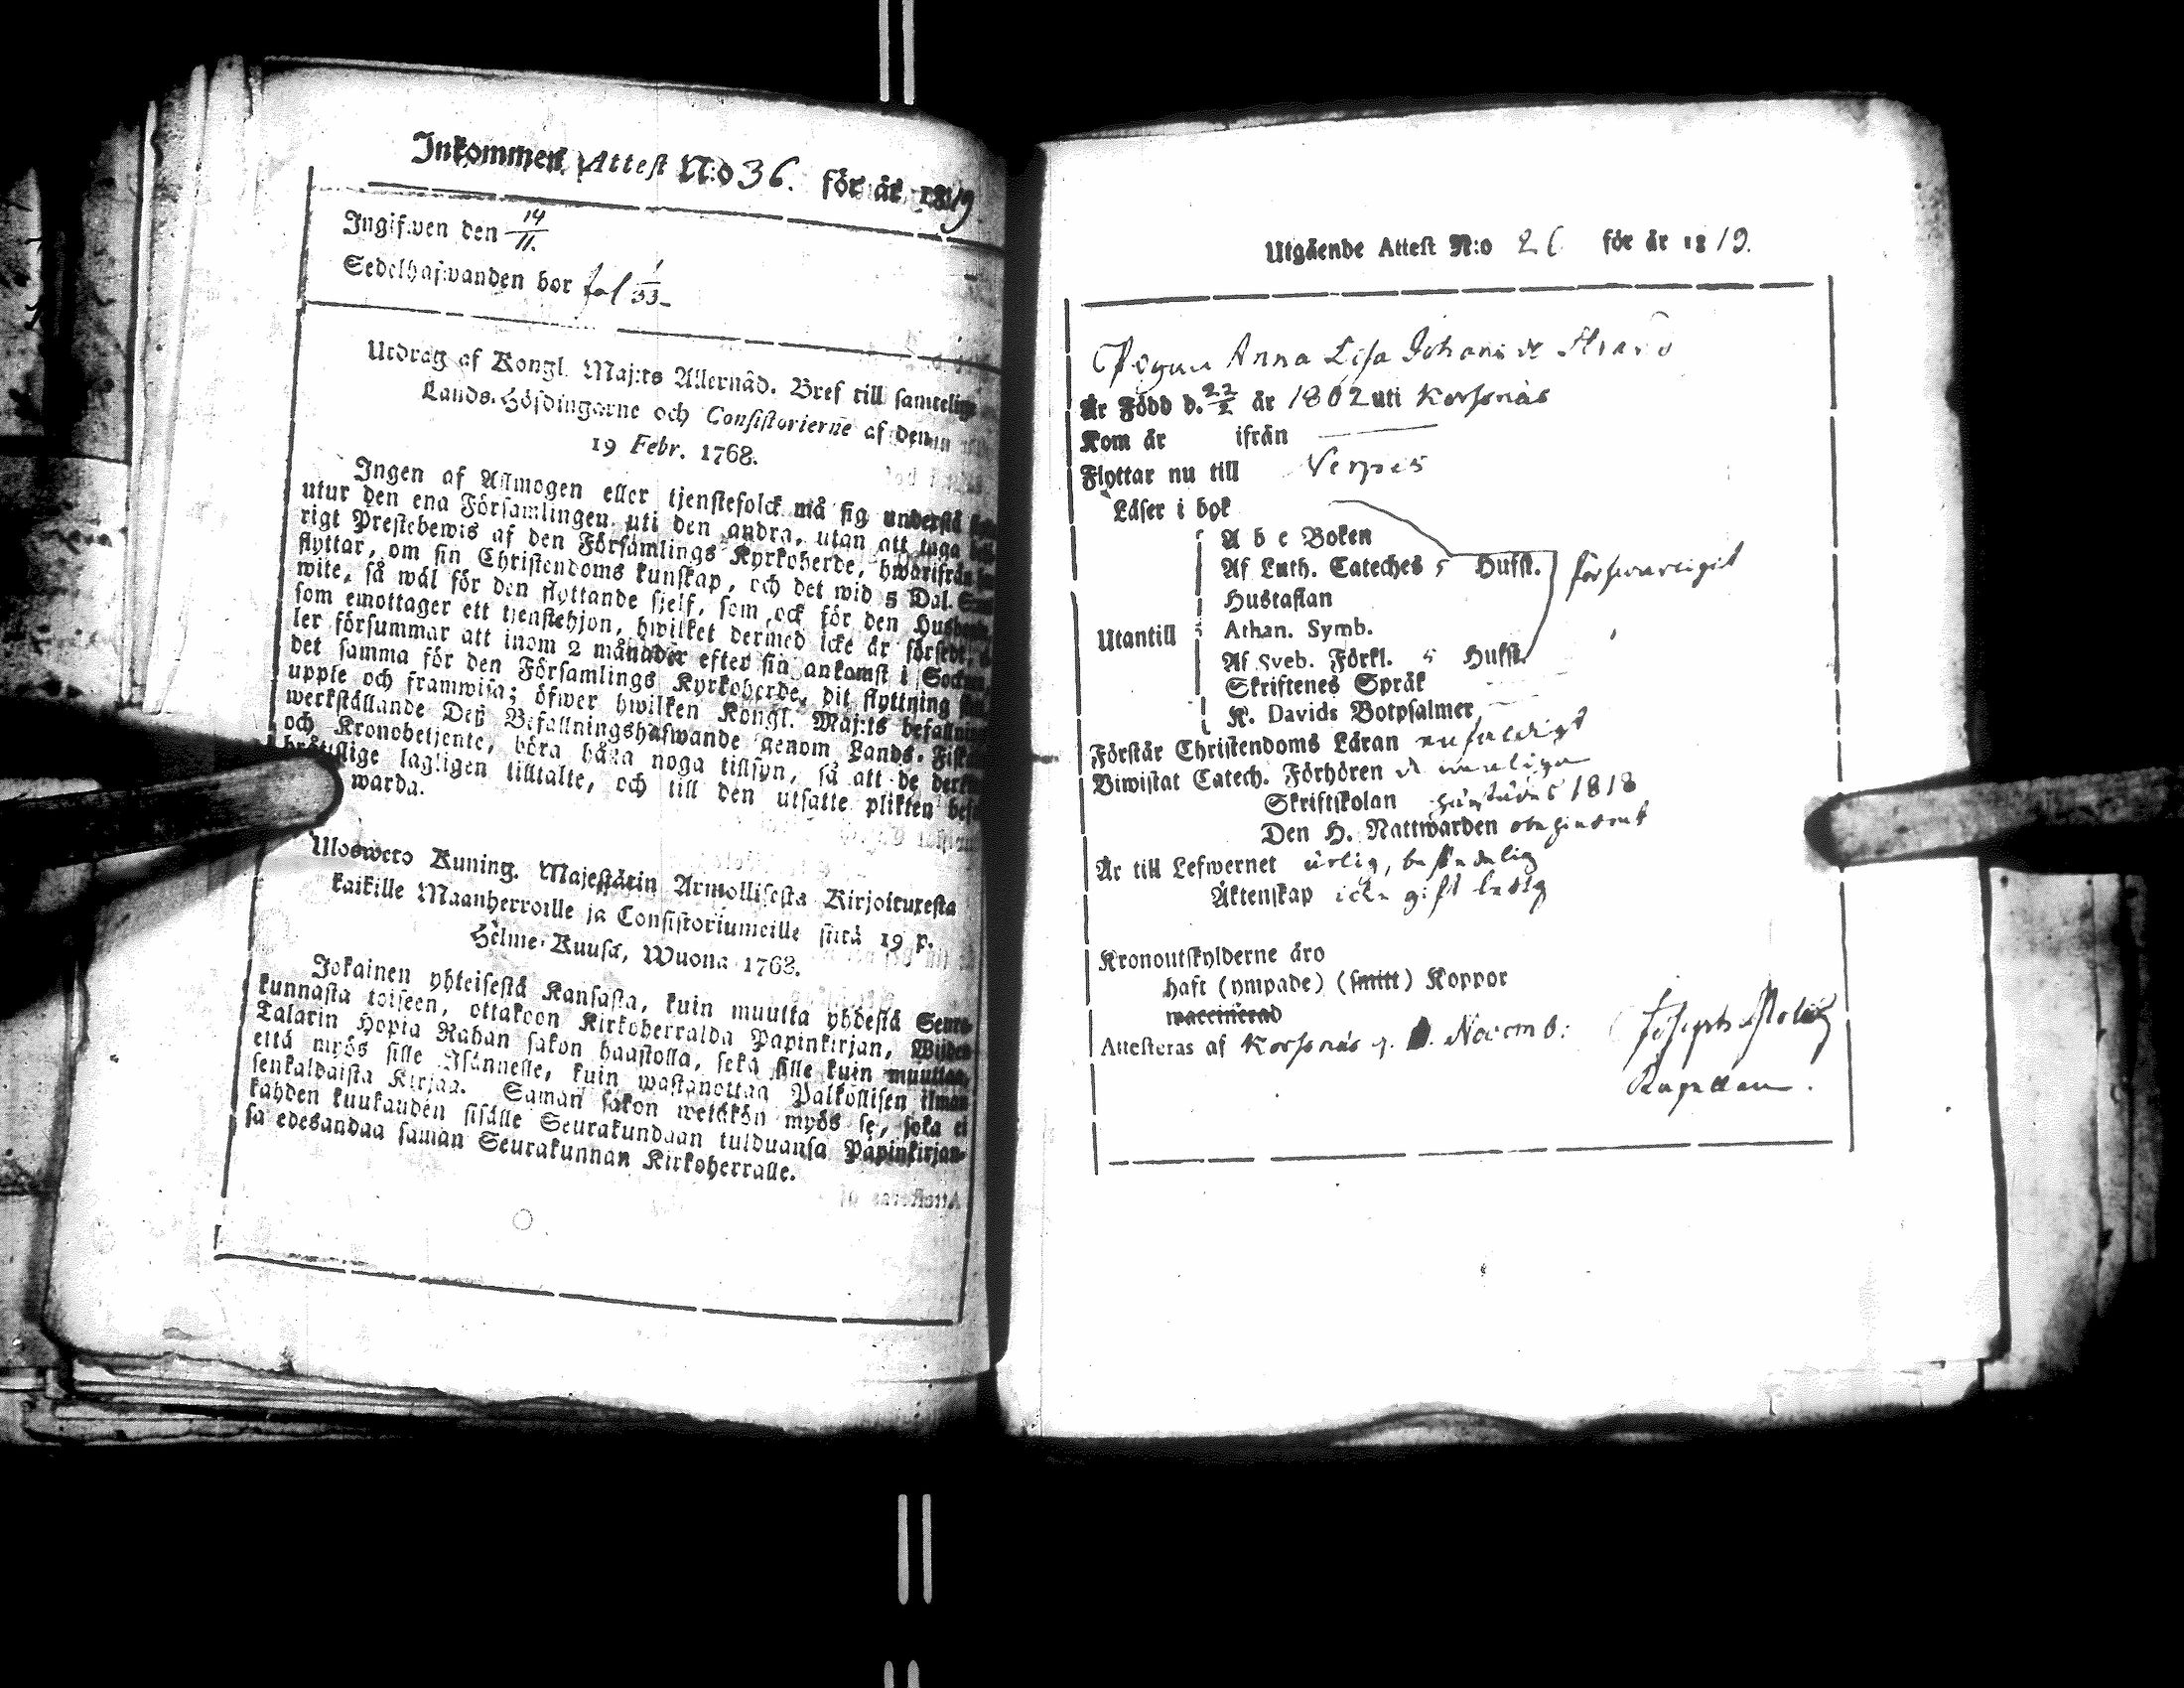 Inkommen Attest N:o 36. för år 1819
Ingifwen den 14/11.
Sedelhafwanden bor fol 1/33
Utdrag af Kongl. Maj:ts Allernåd. Bref till samtelige
Lands-Höfdingarne och Consistorierne af denna
19 Febr. 1768.
Ingen af Allmogen eller tjenstefolck må sig understå
utur den ena Församlingen uti den andra, utan att taga
rigt Prestebewis af den Församlings Kyrkoherde, hwarifrån
flyttar, om sin Christendoms kunskap, och det wid 5 Dal.
wite, så wäl för den flyttande sjelf, som ock för den
som emottager ett tjenstehjon, hwilket dermed icke är försedt,
ler försummar att inom 2 månader efter sin ankomst i Socknen
det samma för den Församlings Kyrkoherde, dit flyttning
uppte och framwisa; öfwer hwilken Kongl. Maj:ts befallning
werkställande Deß Befallningshafwande genom Lands-
och Kronobetjente, böra hafa noga tillsyn, så att de
bråttslige lagligen tilltalte, och till den utsatte plikten
warda.
Uloswero Kuning. Majestätin Armollisesta Kirjoituxesta
kaikille Maanherroille ja Consistoriumeille siitä 19 p.
Helme-Kuusa, Wuona 1768.
Jokainen yhteisestä Kansasta, kuin muutta yhdestä Seura-
kunnasta toiseen, ottakoon Kirkoherralda Papinkirjan, Wijden
Talarin Hopia Rahan sakon haastolla, sekä sille kuin muuttaa,
että myös sille Isännelle, kuin wastanottaa Palkollisen ilman
senkaldaista Kirjaa. Saman sakon wetäkön myös se, joka ei
kahden kuukauden sisälle Seurakundaan tulduansa Papinkirjan-
sa edesandaa saman Seurakunnan Kirkoherralle.
Utgående Attest N:o 26 för år 1819.
Pigan Anna Lisa Johans dr Strand
Är Född d. 22/2 år 1802 uti Korsnäs
Kom år ifrån
Flyttar nu till
Läser i bok
A b c Boken
Af Luth. Cateches 5 Hufst. försvarligit
Hustaflan
Athan. Symb.
Utantill
Af Sveb. Förkl. 5 Hufst.
Skriftenes Språk
K. Davids Botpsalmer
Förstår Christendoms Läran enfaldigt
Biwistat Catech. Förhören
Skriftskolan härstädes 1818
Den H. Nattwarden obehindrat
Är till Lefwernet ärlig, beskedelig
Äktenskap icke gift ledig
Kronoutskylderne äro
haft (ympade) (smitt) Koppor
waccinerad
Attesteras af Korsnäs d. Novemb:
Joseph
Kapellan.